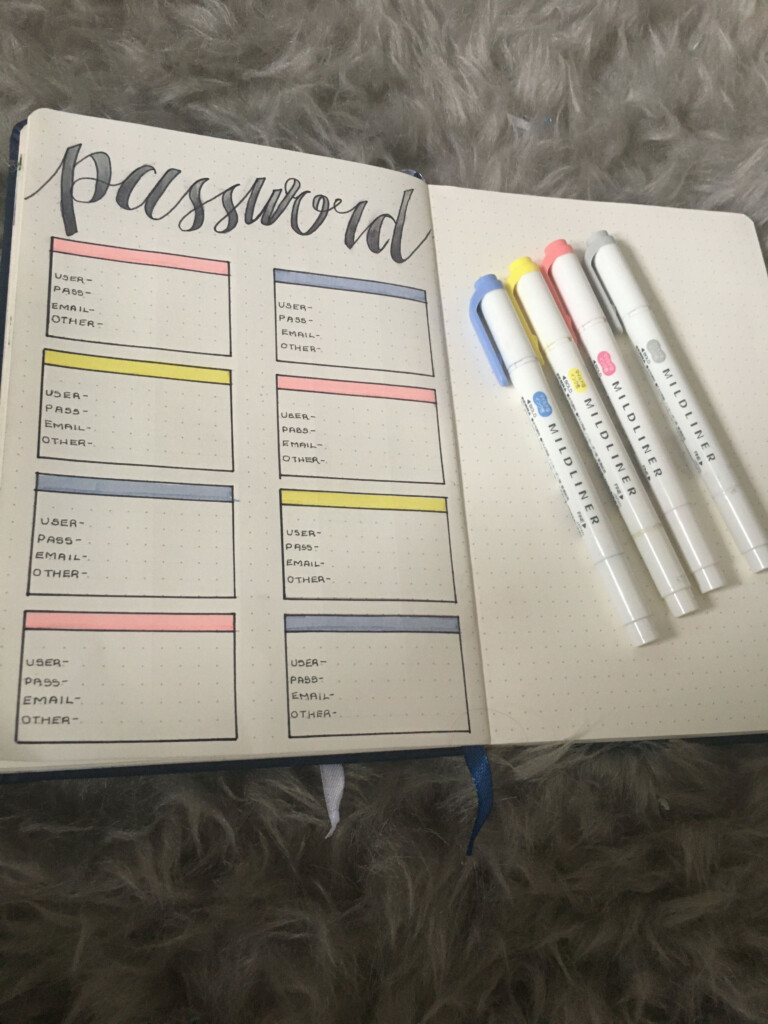 password
USER-
PASS-
EMAIL-
OTHER-
USER-
PASS-
EMAIL-
OTHER-
USER-
PASS-
EMAIL-
OTHER-
USER-
PASS-
EMAIL-
OTHER-
USER-
PASS-
EMAIL-
OTHER-
USER-
PASS-
EMAIL-
OTHER-
USER-
PASS-
EMAIL-
OTHER-
USER-
PASS-
EMAIL-
OTHER-
MILDLINER
MILDLINER
MILDLINER
MILDLINER